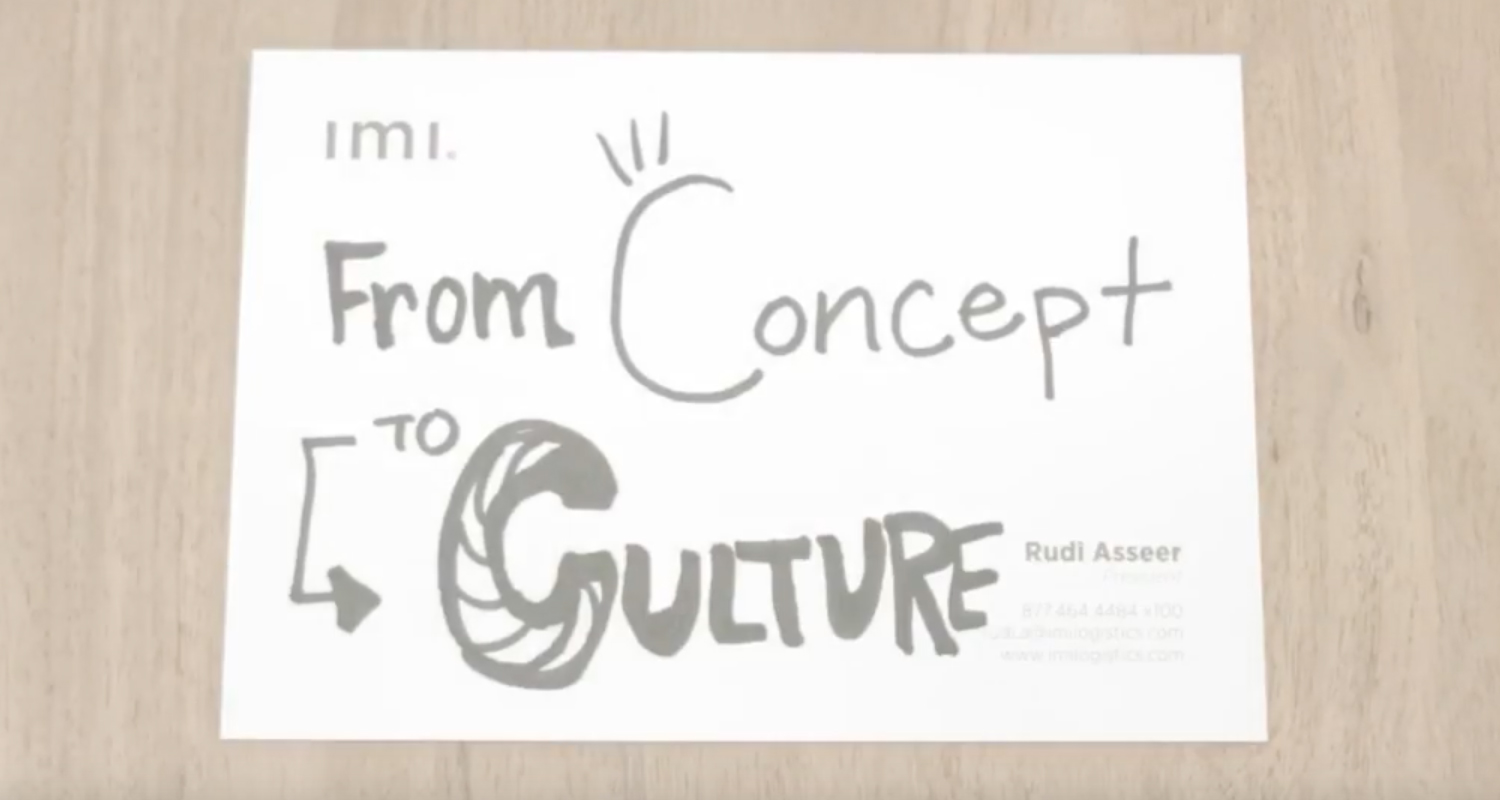 imi.
From Concept
TO
CULTURE
Rudi Asseer
President
877 464 4484 x100
www.imilogistics.com